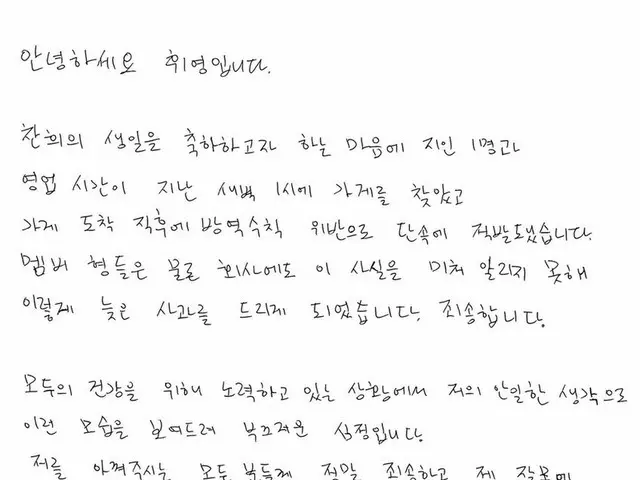 안녕하세요 휘영입니다.
찬희의 생일을 축하하고자 하는 마음에 지인 1명과
영업 시간이 지난 새벽 1시에 가게를 찾았고
가게 도착 직후에 방역수칙 위반으로 단속에 적발됐습니다.
멤버 형들은 물론 회사에도 이 사실을 미처 알리지 못해
이렇게 늦은 사과를 드리게 되었습니다. 죄송합니다.
모두의 건강을 위해 노력하고 있는 상황에서 저의 안일한 생각으로
이런 모습을 보여드려 부끄러운 심정입니다.
저를 아껴주시는 모든 분들께 정말 죄송하고 제 잘못에